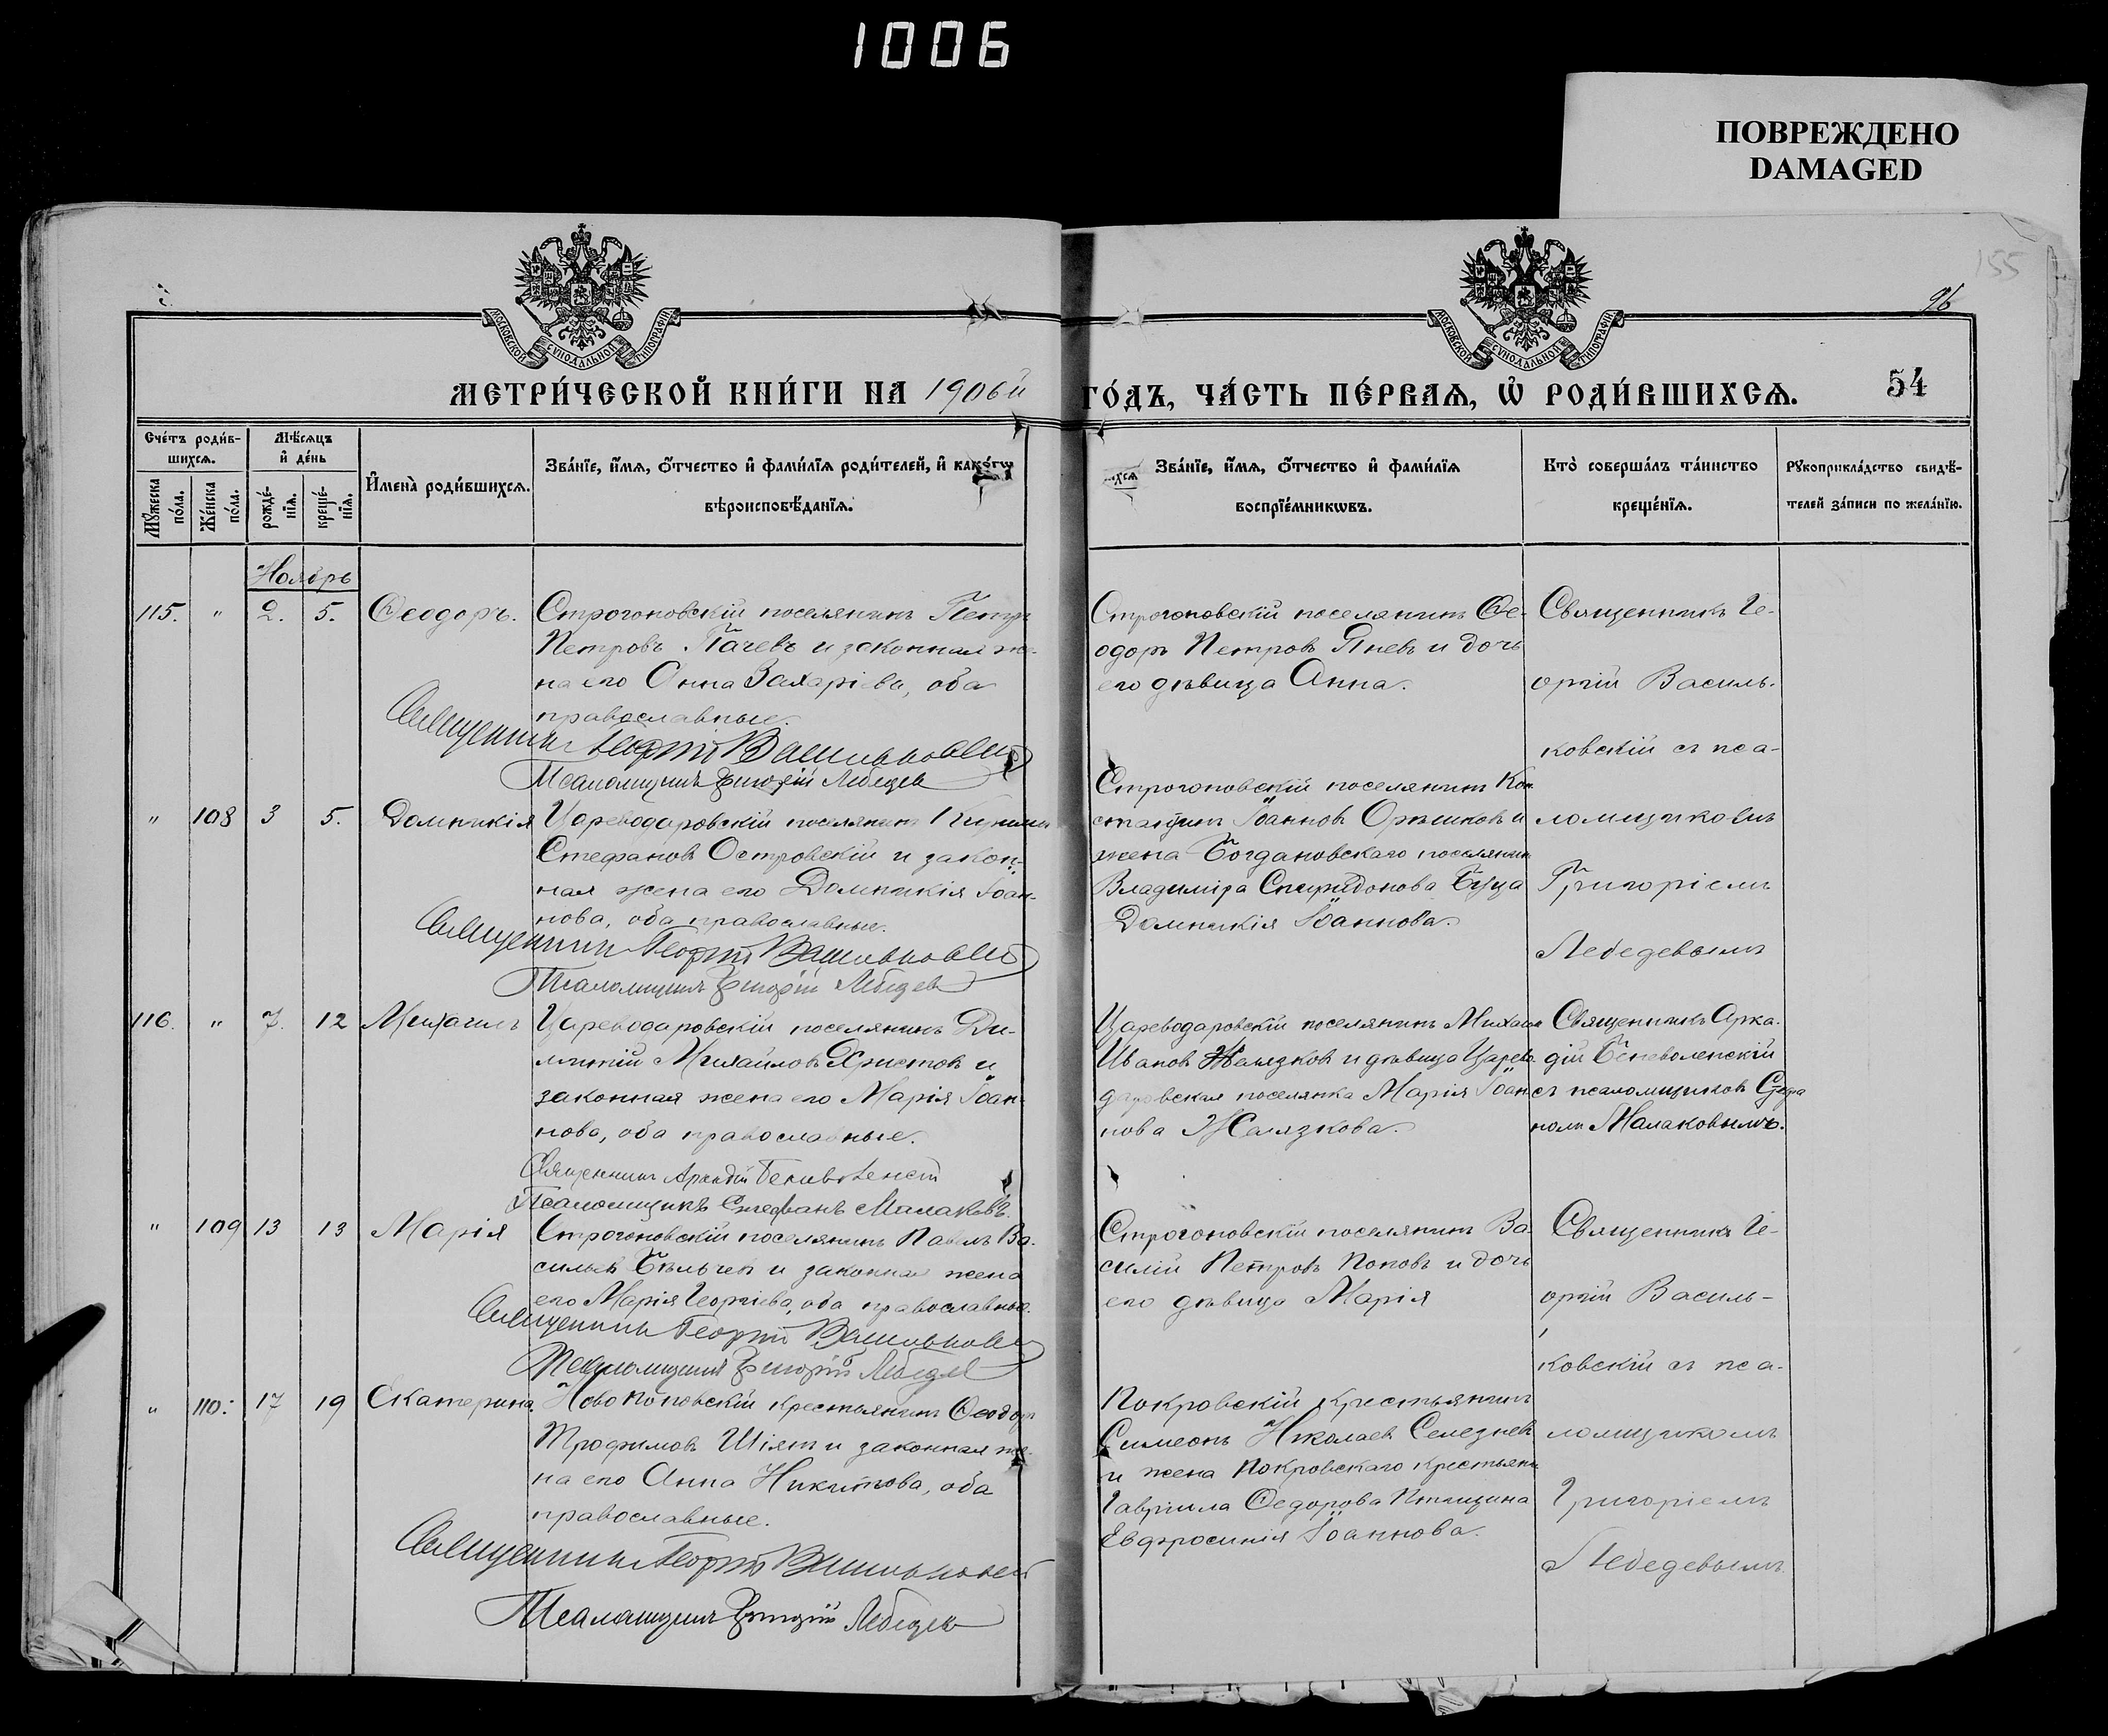 1006
ПОВРЕЖДЕНО
DAMAGED
155
96
МОСКОВСКОЙ СѴНОДАЛЬНОЙ ТИПОГРАФІИ
МОСКОВСКОЙ СѴНОДАЛЬНОЙ ТИПОГРАФІИ
МЕТРИ́ЧЕСКОЙ КНИ́ГИ НА 1906й ГО́ДЪ, ЧА́СТЬ ПЕ́РВАѦ, Ѡ҆ РОДИ́ВШИХСѦ. 54
Сче́тъ роди́в-
шихсѧ.
Мѣ́сѧцъ
и҆ де́нь
Мꙋ́жеска
по́ла.
Же́нска
по́ла.
рожде́-
нїѧ.
креще́-
нїѧ.
И҆мена̀ роди́вшихсѧ.
Зва́нїе, и҆́мѧ, ѻ҆́тчество и҆ фами́лїѧ роди́телей, и҆ како́гѡ
вѣроисповѣ́данїѧ.
Зва́нїе, и҆́мѧ, ѻ҆́тчество и҆ фами́лїѧ
воспрїе́мникѡвъ.
Кто̀ соверша́лъ та́инство
креще́нїѧ.
Рꙋкоприкла́дство свидѣ́-
телей за́писи по жела́нїю.
Ноябрь
115. " 2. 5. Ѳеодоръ. Строгоновскій поселянинъ Петръ
Петровъ Пачевъ и законная же-
на его Анна Захаріева, оба
православные.
Священникъ Георгій Васильковскій
Псаломщикъ Григорій Лебедев
Строгоновскій поселянинъ Ѳе-
одоръ Петровъ Янев и дочь
его дѣвица Анна.
Священникъ Ге-
оргій Василь-
ковскій съ пса-
ломщикомъ
Григоріемъ
Лебедевымъ
" 108 3 5. Домникія Цареводаровскій поселянинъ
Стефановъ Островскій и закон-
ная жена его Домникія Іоан-
нова, оба православные.
Священникъ Георгій Васильковскій
Псаломщикъ Григорій Лебедев
Строгоновскій поселянинъ Кон-
стантинъ Іоанновъ Орѣшковъ и
жена Богдановскаго поселянина
Владиміра Спиридонова Буца
Домникія Іоаннова.
116. " 7. 12 Михаилъ Цареводаровскій поселянинъ Ди-
митрій Михайловъ Христовъ и
законная жена его Марія Іоан-
нова, оба православные.
Священникъ Аркадій Беневоленскій
Псаломщикъ Стефанъ Малаковъ.
Цареводаровскій поселянинъ Михаилъ
Ивановъ Жалязковъ и дѣвица Царево-
даровская поселянка Марія Іоан-
нова Жалязкова.
Священникъ Арка-
дій Беневоленскій
съ псаломщикомъ Стефа-
номъ Малаковымъ.
" 109 13 13 Марія Строгоновскій поселянинъ Павелъ Ва-
сильевъ Бѣльчев и законная жена
его Марія Георгіева, оба православные.
Священникъ Георгій Васильковскій
Псаломщикъ Григорій Лебедев
Строгоновскій поселянинъ Ва-
силій Петровъ Поповъ и дочь
его дѣвица Марія
Священникъ Ге-
оргій Василь-
ковскій съ пса-
ломщикомъ
Григоріемъ
Лебедевымъ
" 110. 17 19 Екатерина. Новопоповскій крестьянинъ Ѳеодоръ
Трофимовъ Шіян и законная же-
на его Анна Никитова, оба
православные.
Священникъ Георгій Васильковскій
Псаломщикъ Григорій Лебедев
Покровскій крестьянинъ
Симеонъ Николаев Селезнев
и жена Покровскаго крестьянина
Гавріила Ѳедорова Птицина
Евфросинія Іоаннова.